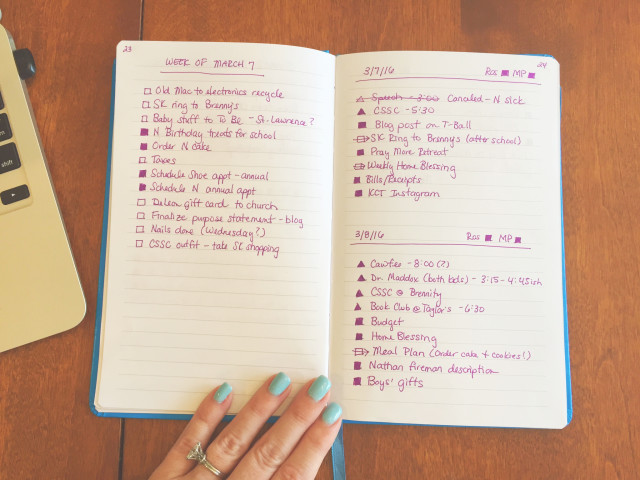 23
WEEK OF MARCH 7
Old Mac to electronics recycle
SK ring to Brenny's
Baby stuff to To Be - St. Lawrence?
N Birthday treats for school
Order N cake
Taxes
Schedule Shoe appt - annual
Schedule N annual appt
gift card to church
Finalize purpose statement - blog
Nails done (Wednesday?)
CSSC outfit - take SK shopping
24
3/7/16 Ros MP
Speech - 3:00 Canceled - N sick
CSSC - 5:30
Blog post on T-Ball
SK Ring to Brenny's (after school)
Pray More Retreat
Weekly Home Blessing
Bills/Receipts
KCT Instagram
3/8/16 Ros MP
- 8:00 (?)
Dr. Maddox (both kids) - 3:15 - 4:45ish
CSSC @ Brennity
Book Club @ Taylor's - 6:30
Budget
Home Blessing
Meal Plan (order cake + cookies!)
Nathan fireman description
Boys' gifts
shift